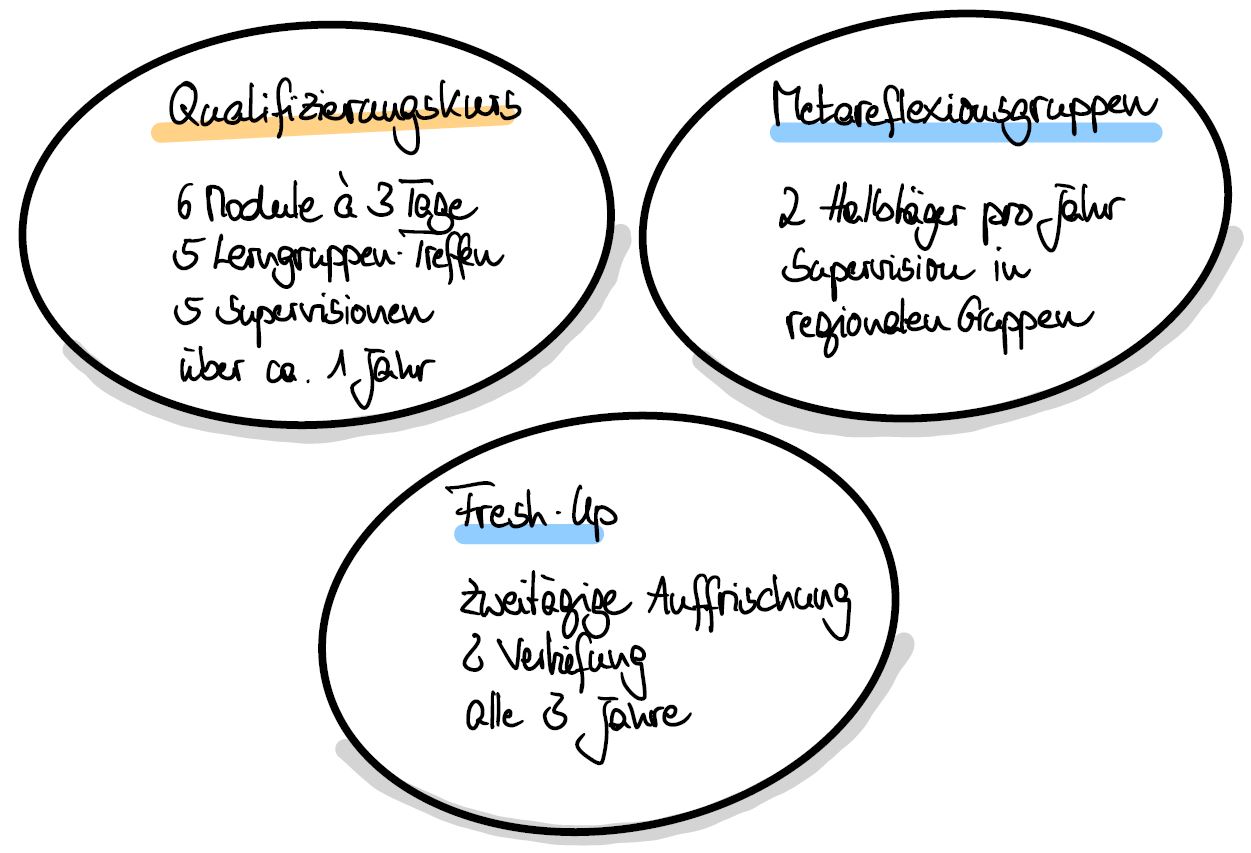 Qualifizierungskurs
6 Module à 3 Tage
5 Lerngruppen-Treffen
5 Supervisionen
über ca. 1 Jahr
Metareflexionsgruppen
2 Halbtäger pro Jahr
Supervision in
regionalen Gruppen
Fresh-Up
zweitägige Auffrischung
& Vertiefung
alle 3 Jahre